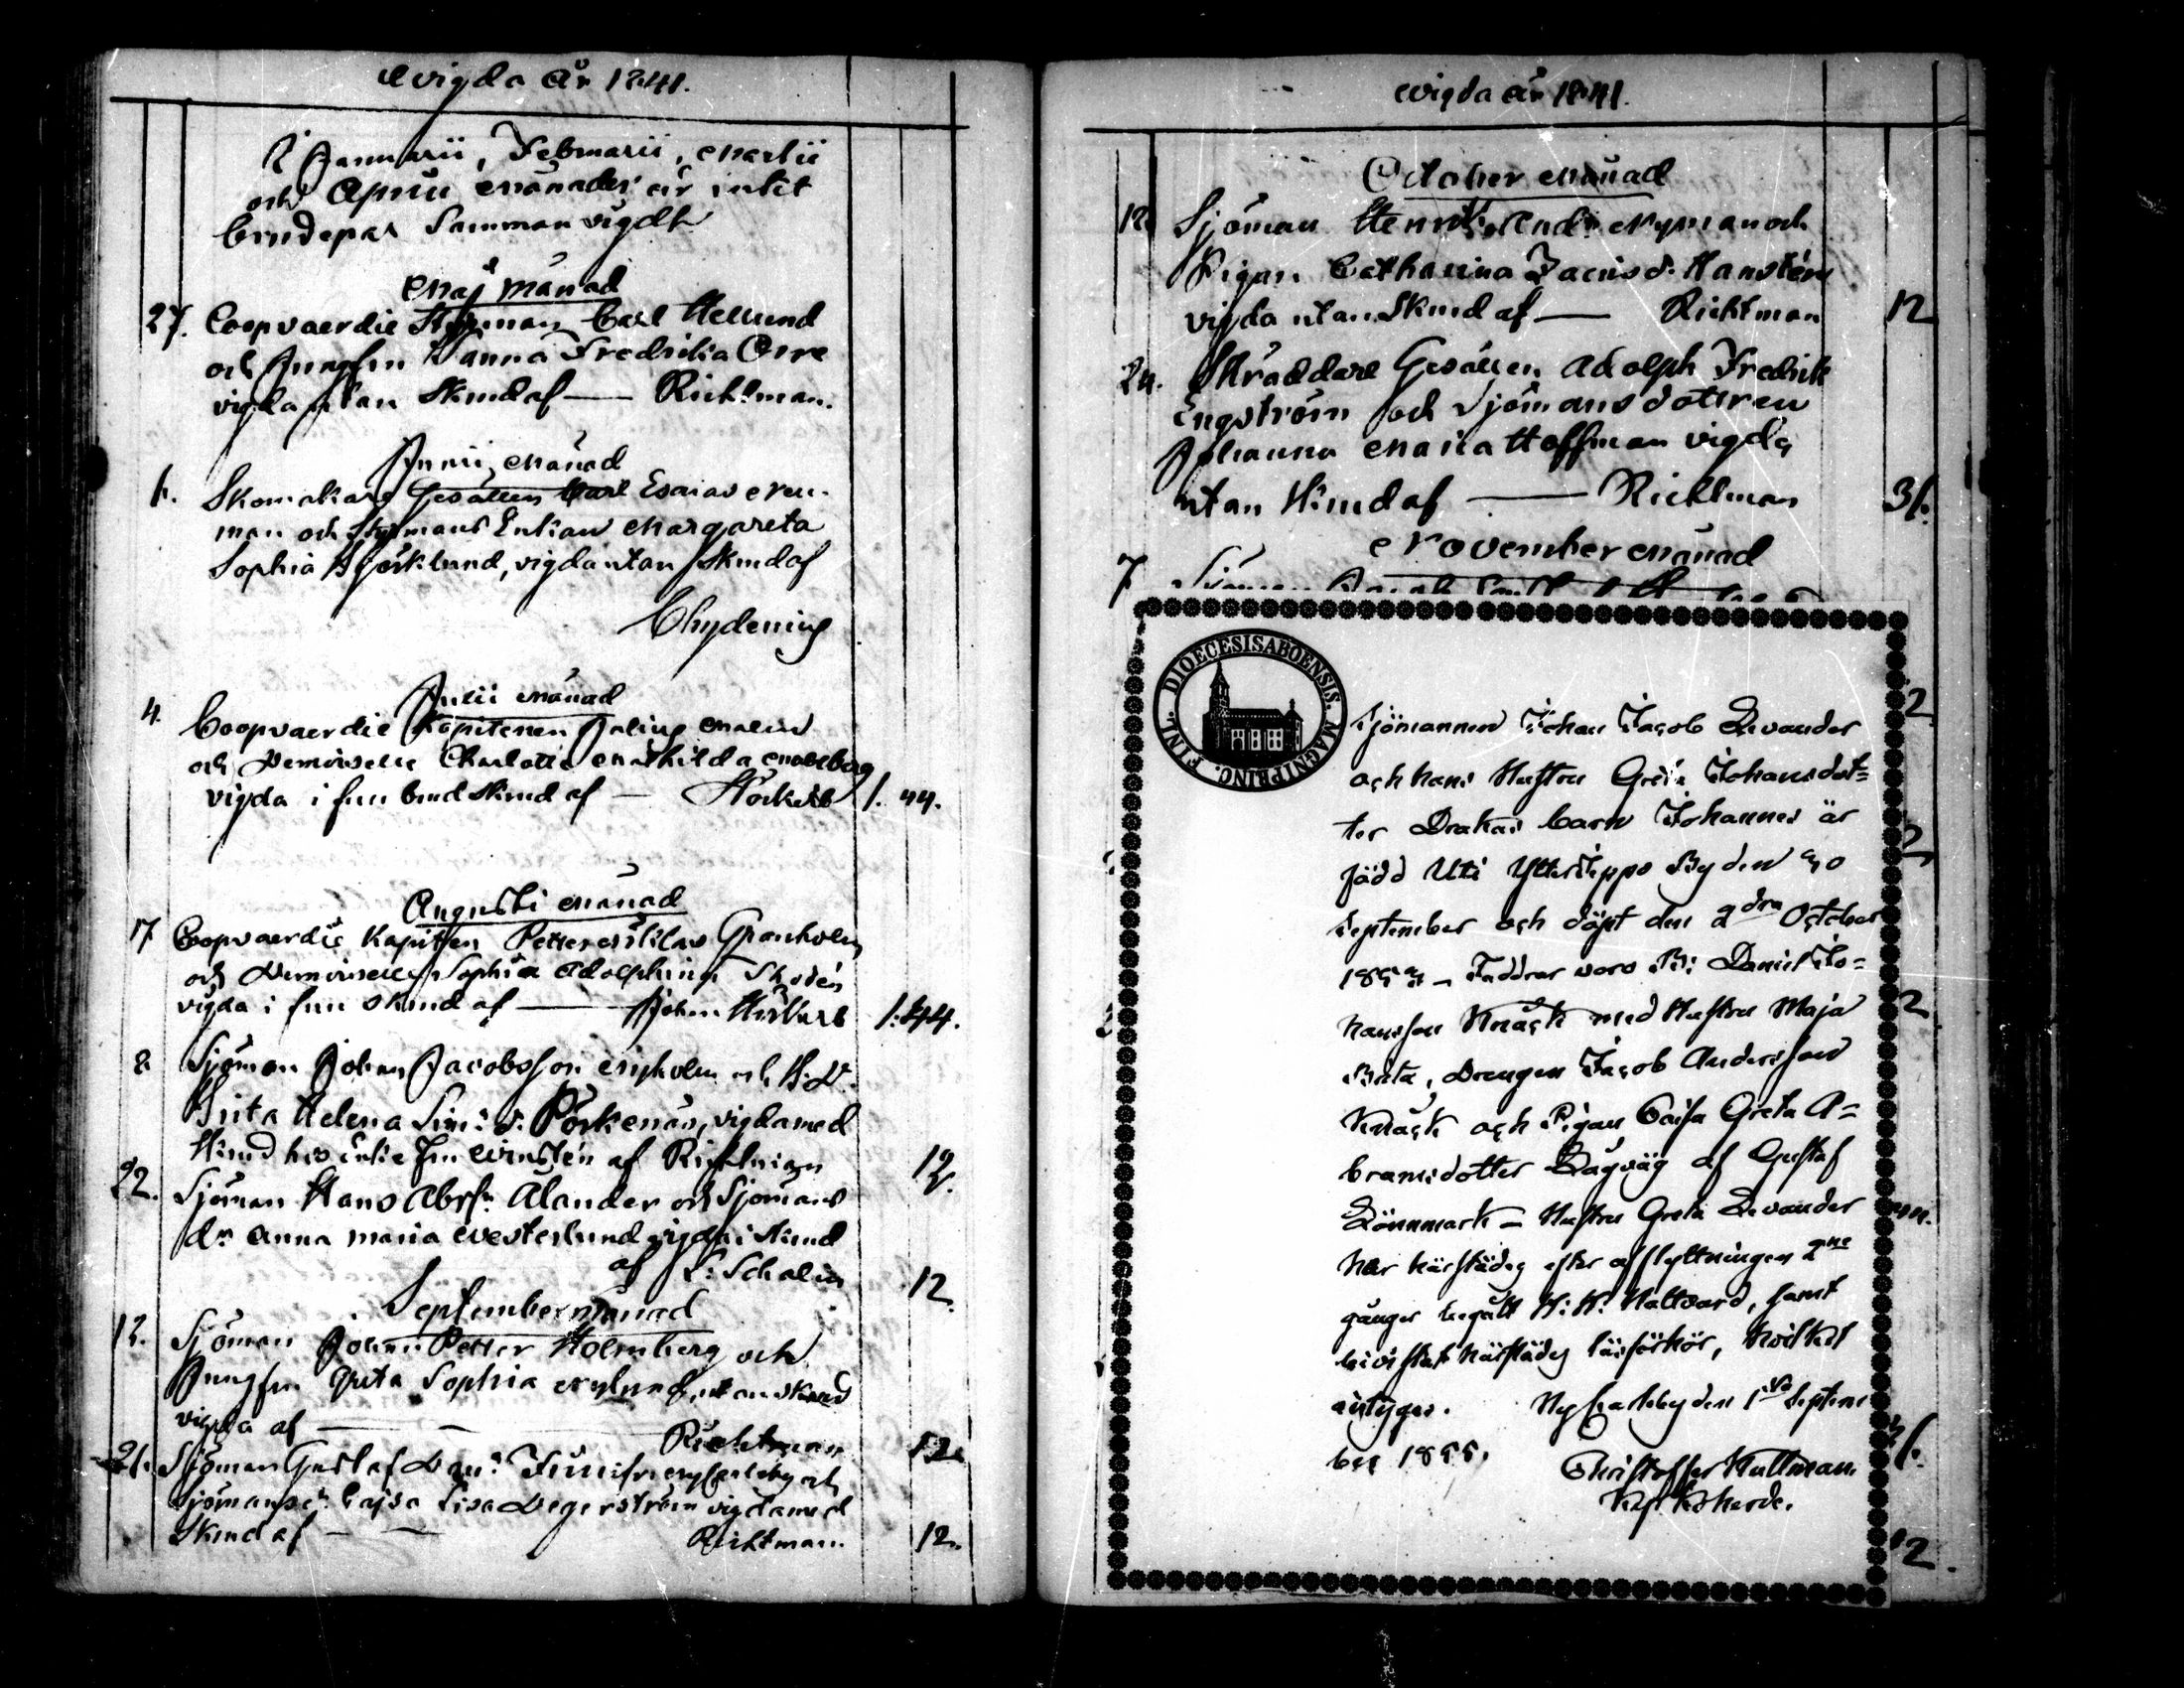 Wigda År 1841.
I Januarii, Februarii, Martii
och Aprill Månader är intet
Brudepar Samman vigdt
Maj månad
27. Coopvaerdie Styrman Carl Hellund
och Jungfru Hanna Fredrika Orre
vigda utan Skrud af — Richtman.
Junii Månad
1. Skomakare Gesällen Carl Esaias Neu-
man och Styrmans Enkan Margareta
Sophia Björklund, vigda utan Skrud af
Chydenius
Julii Månad
4. Coopvaerdie Kapitenen Julius Malin
och Demoiselle Charlotta Mathilda Malmberg
vigda i full brud Skrud af — 1. 44.
Augusti Månad
17 Coopvaerdie Kapiten Petter Niklas Granholm
och Demoiselle Sophia Adolphina
vigda i full Skrud af — Johan 1:44.
8 Sjöman Johan Jacobsson Nyholm och B. D.
Brita Helena Sim: d: Pörkenäs, vigda med
Skrud hos af Richtman 12.
22. Sjöman Hans Abrs:n Ålander och Sjömans
d:r Anna Maria Westerlund vigda i Skrud
af L: Schalin 12.
September månad
12. Sjöman Johan Petter Holmberg och
Jungfru Greta Sophia Nylund, utan Skrud
vigda af — — Richtman 12.
21. Sjöman Gustaf Dan: från Nycarleby och
Sjömansd:r Cajsa Lisa Degerström vigda med
Skrud af — — Richtman. 12.
Wigda År 1841.
October Månad
12. Sjöman Henrik And: Nyman och
Pigan Catharina Jacobsd. Hanstén
vigda utan Skrud af — Richtman 12
24. Skräddare Gesällen Adolph Fredrik
Engström och Sjömans dottren
Johanna Maria Hoffman vigda
utan Skrud af — Richtman 31.
November Månad
7. Sjöman Jacob
DIOECESIS ABOENSIS. MAGNI PRINC. FINL.
Sjömannen Johan Jacob Levander
och hans Hustru Greta Johansdot=
ter Drakas barn Johannes är
född Uti Ytterjeppo By den 30
September och döpt den 2dra October
1853 — Faddrar voro B: Daniel Jo=
hansson Knäck med Hustru Maja
Brita, Drengen Jacob Andersson
Knäck och Pigan Caisa Greta A=
bramsdotter Dagväg af Gustaf
Lönnmark — Hustru Greta Levander
har härstädes efter afflyttningen 2ne
gånger begått H: H: Nattvard, samt
bivistat härstädes läsförhör, hvilket
intygas. Ny Carleby den 1sta Septem
ber 1855.
Christoffer Hultman
2
2
2
12